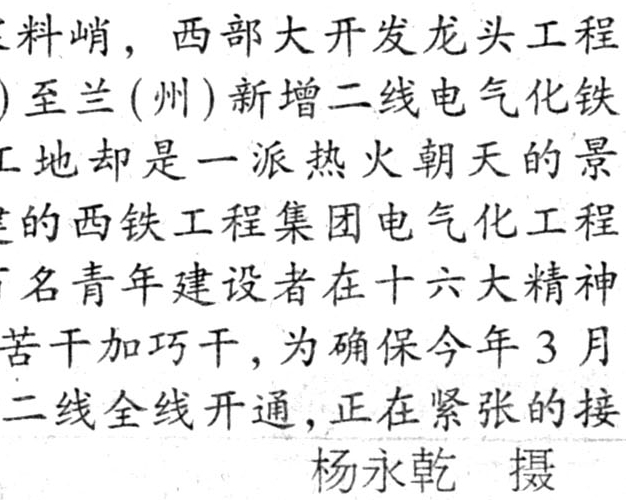 料峭，西部大开发龙头工程
)至兰(州)新增二线电气化铁
工地却是一派热火朝天的景
的西铁工程集团电气化工程
名青年建设者在十六大精神
苦干加巧干,为确保今年3月
二线全线开通,正在紧张的接
杨永乾 摄